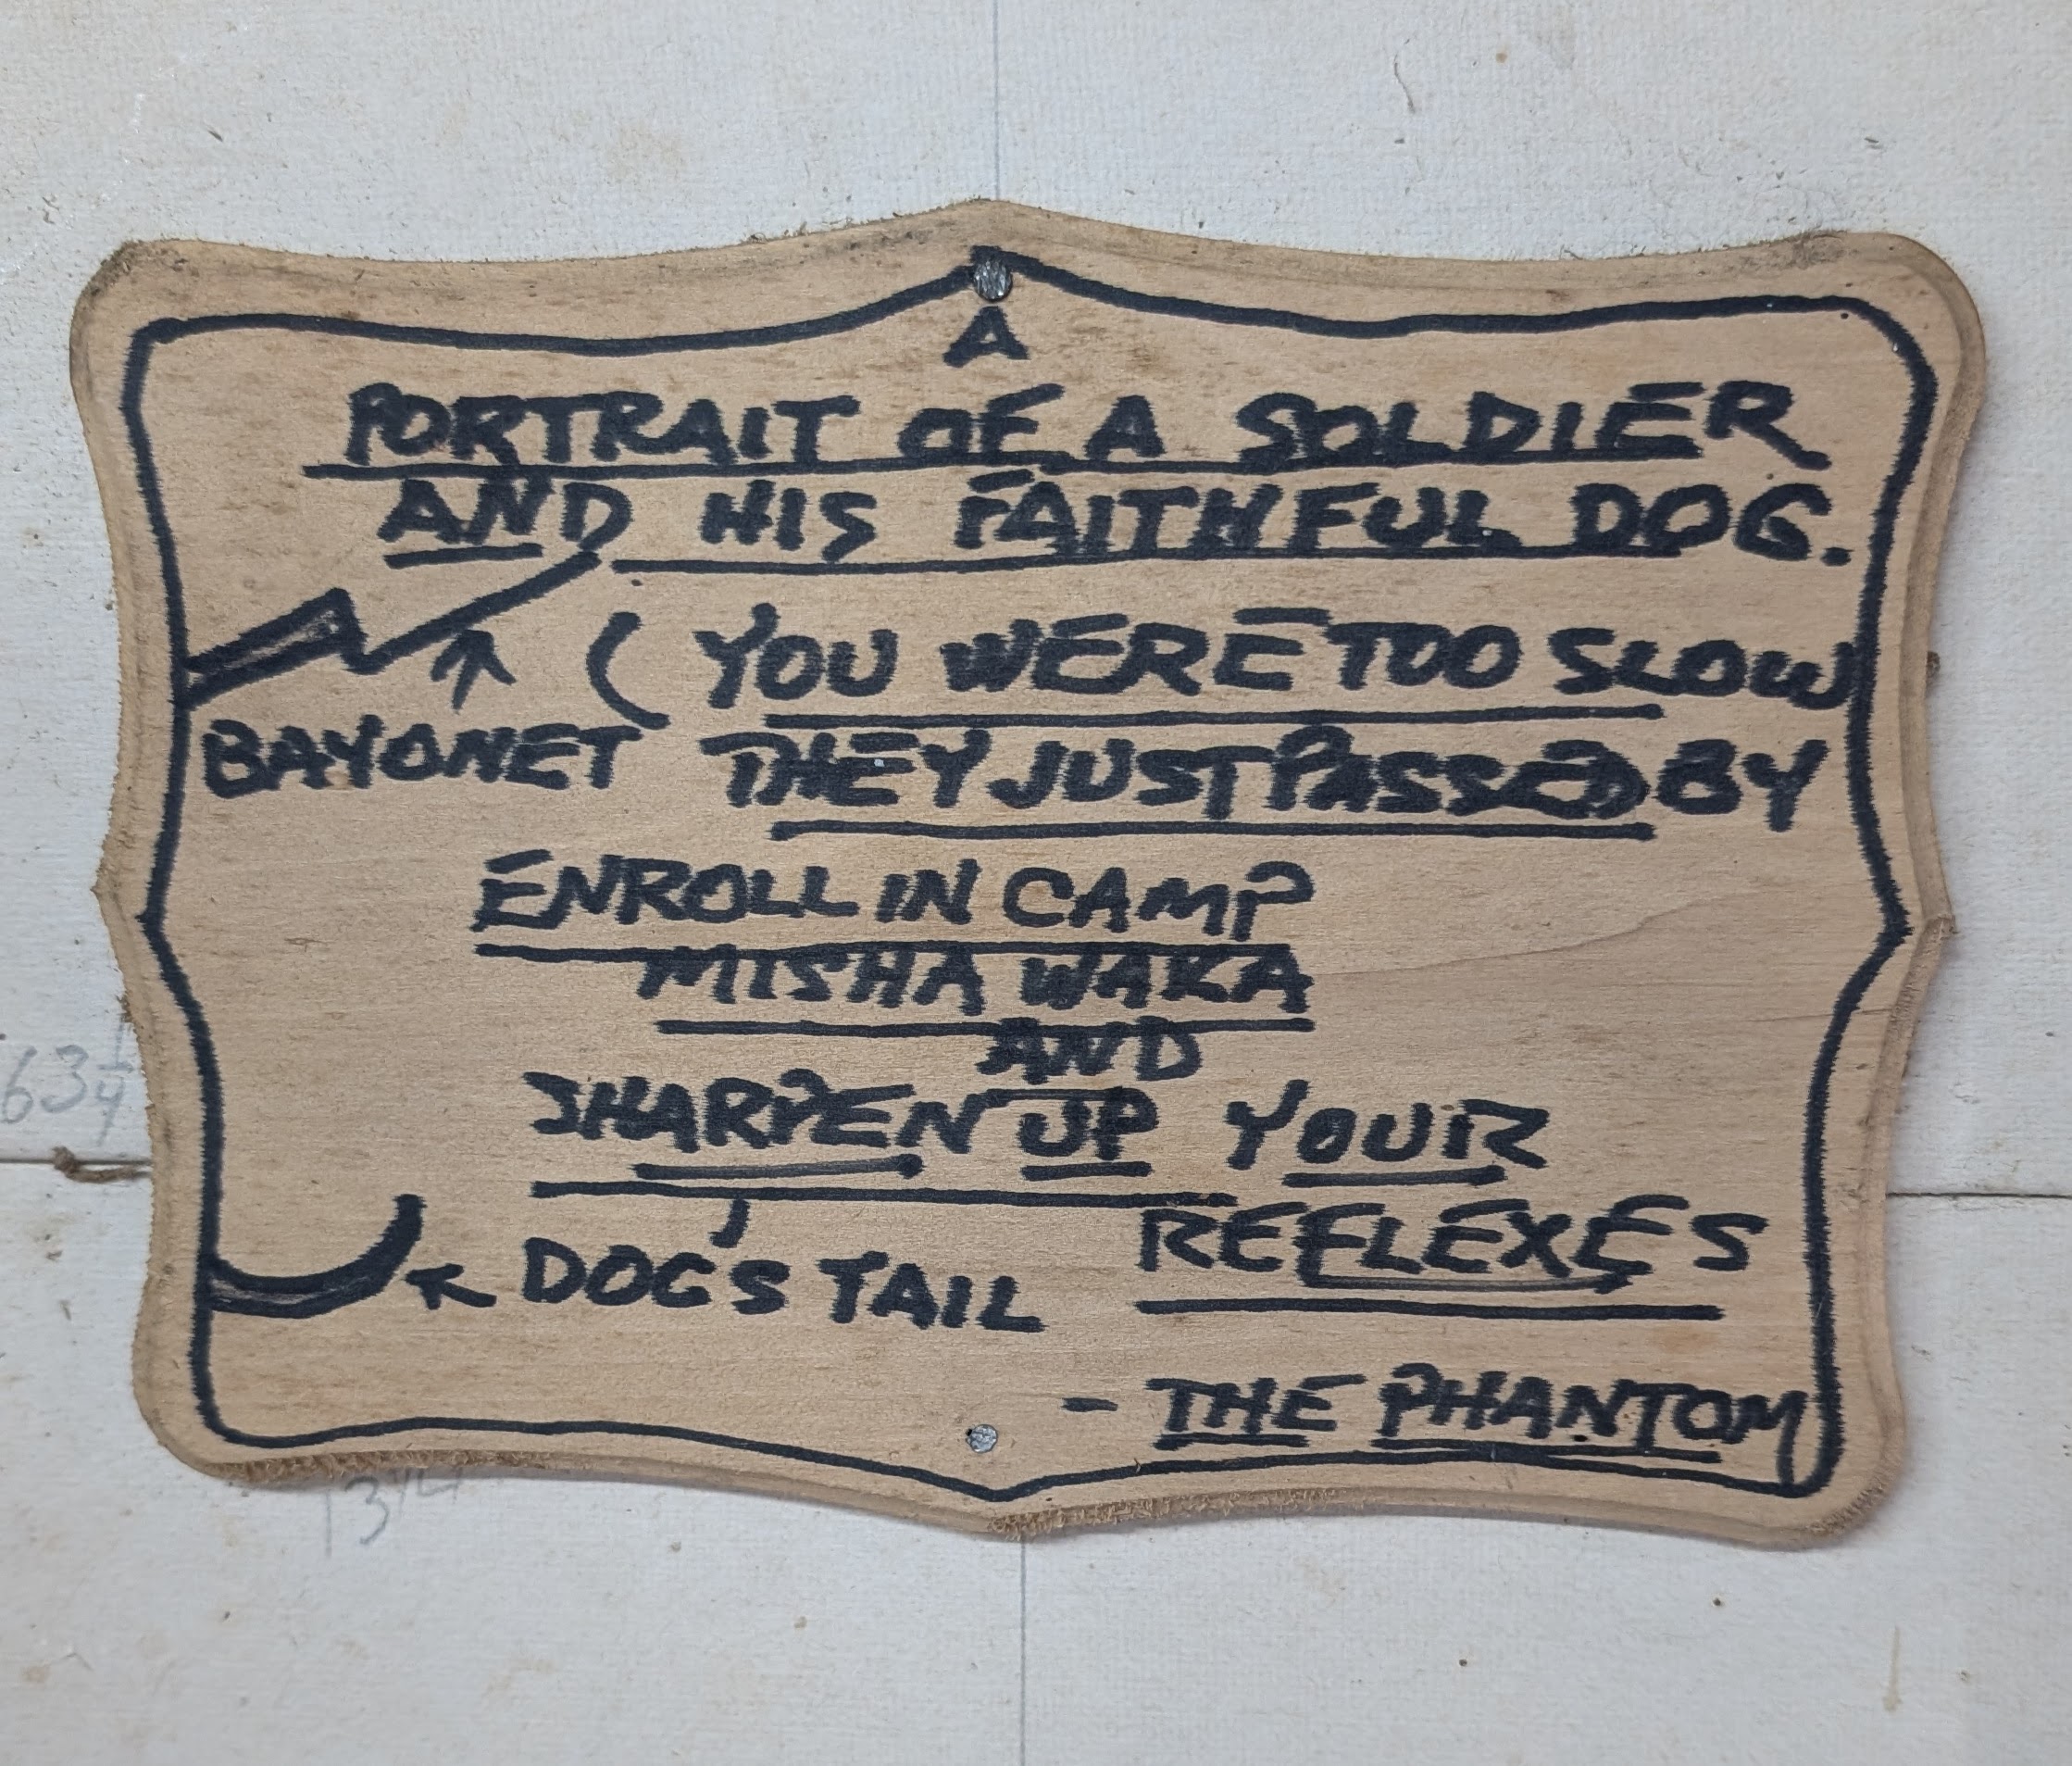 A
PORTRAIT OF A SOLDIER
AND HIS FAITHFUL DOG.
(YOU WERE TOO SLOW
BAYONET
THEY JUST PASSED BY
ENROLL IN CAMP
MISHA WAKA
AND
SHARPEN UP YOUR
REFLEXES
DOG'S TAIL
- THE PHANTOM
63 1/4
13 1/4